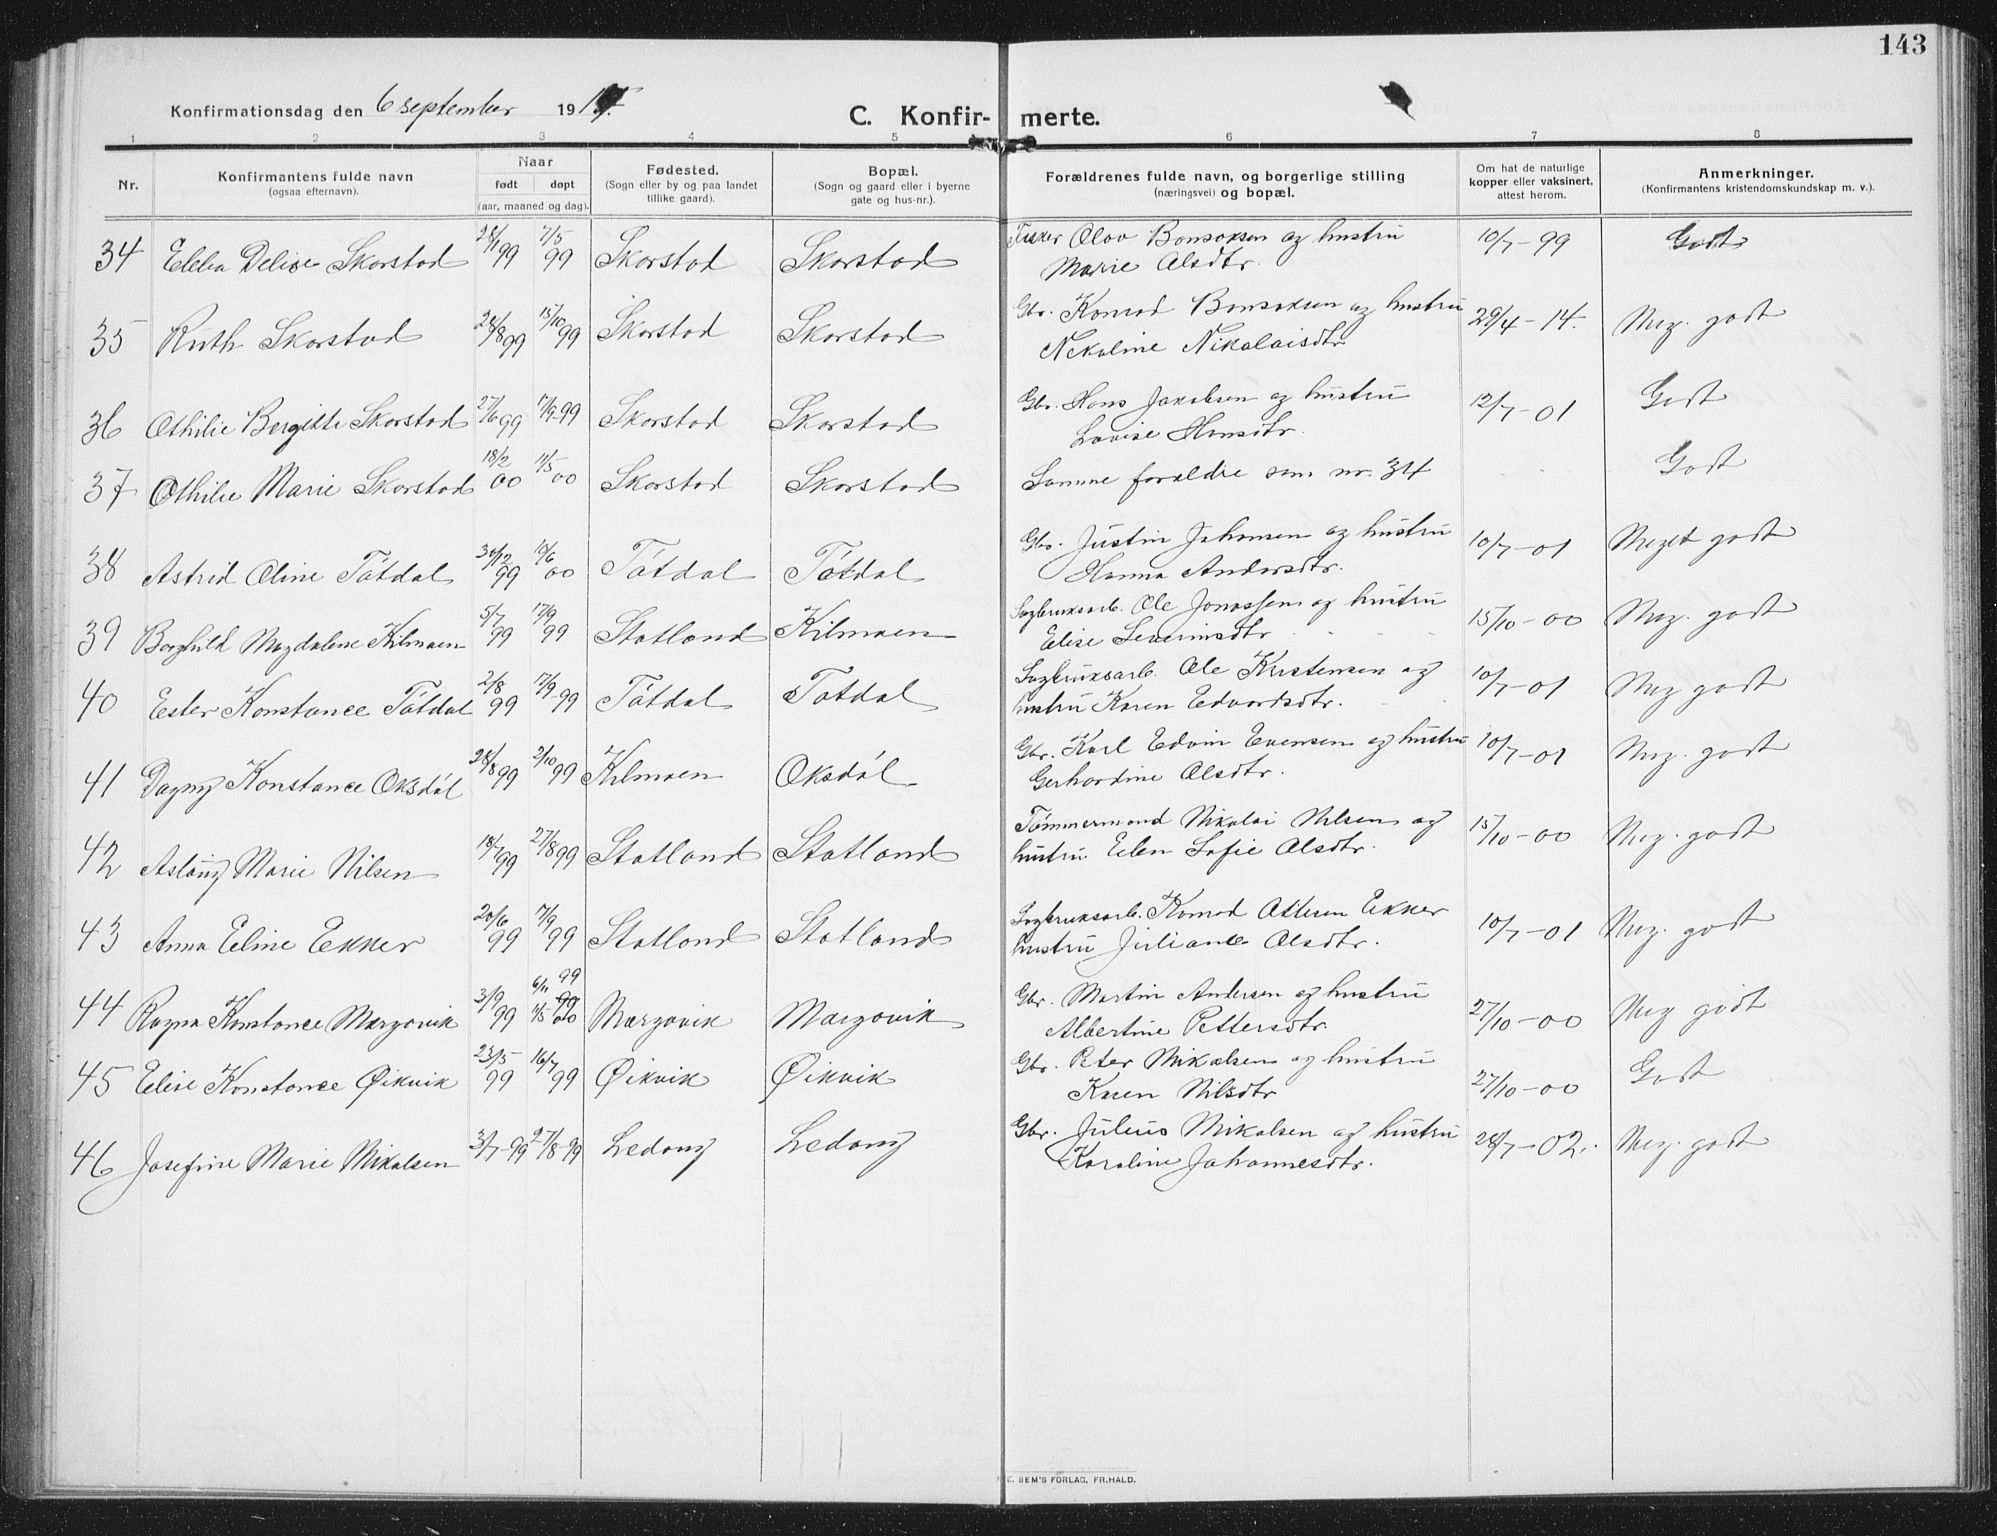 143
Konfirmationsdag den 6 september 191
C. Konfir- merte.
1 2 3 4 5 6 7 8
Nr.
Konfirmantens fulde navn
(ogsaa efternavn).
Naar
født døpt
(aar, maaned og dag).
Fødested.
(Sogn eller by og paa landet
tillike gaard).
Bopæl.
(Sogn og gaard eller i byerne
gate og hus-nr.).
Forældrenes fulde navn, og borgerlige stilling
(næringsvei) og bopæl.
Om hat de naturlige
kopper eller vaksinert,
attest herom.
Anmerkninger.
(Konfirmantens kristendomskundskap m. v.).
34 Ellba Delise Skorstad 28/1 99 7/5 99 Skorstad Skorstad Fisker Olav Bonsaksen og hustru 10/7-99 Godt
Marie Olsdtr.
35 Ruth Skorstad 24/8 99 15/10 99 Skorstad Skorstad Gbr. Konrad Bonsaksen og hustru 29/4-14. Meg. godt
Nekoline Nikolaisdtr
36 Othilie Bergitte Skorstad 27/6 99 17/9-99 Skorstad Skorstad Gbr. Hans Jakobsen og hustru 12/7-01 Godt
Lovise Hansdtr.
37 Othilie Marie Skorstad 18/2 00 11/5 00 Skorstad Skorstad Samme forældre som nr. 34 Godt
38 Astrid Oline Tøtdal 30/12 99 10/6 00 Tøtdal Tøtdal Gbr. Justin Johansen og hustru 10/7-01 Meget godt
Hanna Andersdtr.
39 Borghild Magdalene Kilmoen 5/7 99 17/9 99 Statland Kilmoen Sagbruksarb. Ole Jonassen og hustru 15/10-00 Meg. godt
Elise Severinsdtr
40 Ester Konstance Tøtdal 2/8 99 17/9-99 Tøtdal Tøtdal Sagbruksarb. Ole Kristensen og 10/7-01 Meg godt
hustru Karen Edvardsdtr.
41 Dagny Konstance Oksdøl 28/8 99 2/10 99 Kilmoen Oksdøl Gbr. Karl Edvin Evensen og hustru 10/7-01 Meg. godt
Gerhardine Olsdtr.
42 Aslaug Marie Nilsen 18/7 99 27/8 99 Statland Statland Tømmermand Nikolai Nilsen og 15/10-00 Meg. godt
hustru Elen Sofie Olsdtr.
43 Anna Eline Ekker 20/6 99 17/9 99 Statland Statland Sagbruksarb. Konrad Ottersen Ekker 10/7-01 Meg. godt
hustru Juliane Olsdtr.
44 Ragna Konstance Margovik 3/9 99 6/11 99 11/5 00 Margovik Margovik Gbr. Martin Andersen og hustru 27/10-00 Meg godt
Albertine Pettersdtr.
45 Elise Konstance Øikvik 23/5 99 16/7 99 Øikvik Øikvik Gbr. Peter Mikalsen og hustru 27/10-00 Godt
Karen Nilsdtr
46 Josefine Marie Mikalsen 3/7-99 27/8-99 Ledang Ledang Gbr. Julius Mikalsen og hustru 28/7-02. Meg. godt
Karoline Johannesdtr.
SEM'S FORLAG, FR.HALD.